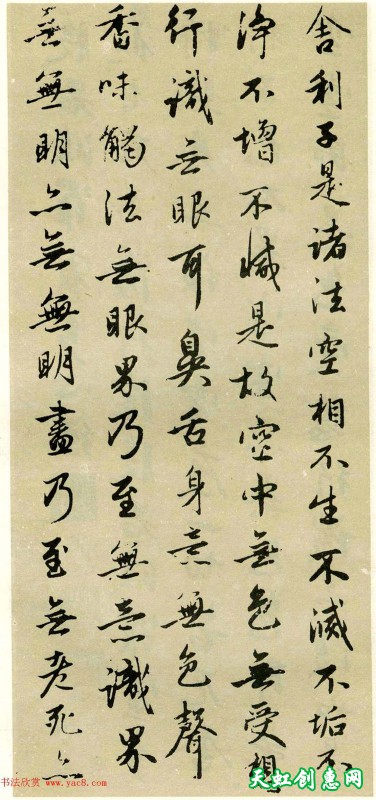 舍利子是诸法空相不生不滅不垢不
净不增不減是故空中無色無受想
行識无眼耳鼻舌身意無色聲
香味觸法無眼界乃至無意識界
無無明亦無無明盡乃至無老死亦
书法欣赏 www.yac8.com
天虹创惠网